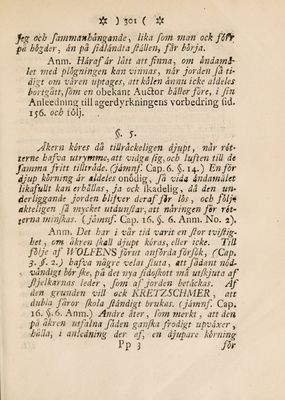 ✲ ) 301 ( ✲
seg och sammanhängande, lika som man ock förr
på högder, än på sidländta ställen, får börja.
Anm. Häraf är lätt at finna, om ändamå-
let med plögningen kan vinnas, när jorden så ti-
digt om våren uptages, att kälen ännu icke aldeles
bortgått, som en obekant Auctor håller före, i sin
Anleedning till agerdyrkningens vorbedring sid.
156. och följ.
§. 5.
Åkern köres då tillräckeligen djupt, när röt-
terne hafva utrymme, att vidga sig, och luften till de
samma fritt tillträde. (jämnf. Cap. 6. §. 14.) En för
djup körning är aldeles onödig, så vida ändamålet
likafullt kan erhållas, ja ock skadelig, då den un-
derliggande jorden blifver deraf för lös, och följ-
akteligen så mycket utdunstar, att näringen för röt-
terna minskas. (jämnf. Cap. 16. §. 6. Anm. No. 2).
Anm. Det har i vår tid varit en stor tvistig-
het, om åkren skall djupt köras, eller icke. Till
följe af WOLFENS förut anförda försök, (Cap.
3. §. 2.) hafva någre velat sluta, att sådant nöd-
vändigt bör ske, på det nya sidoskott må utskjuta af
stjelkarnas leder, som af jorden betäckas. Af
den grunden vill ock KRETZSCHMER, att
dubla fåror skola ständigt brukas. (jämnf. Cap.
16. §. 6. Anm.) Andre åter, som märkt, att den
på åkren utfalna säden ganska frodigt upväxer,
hålla, i anledning der af, en djupare körning
Pp 3
för